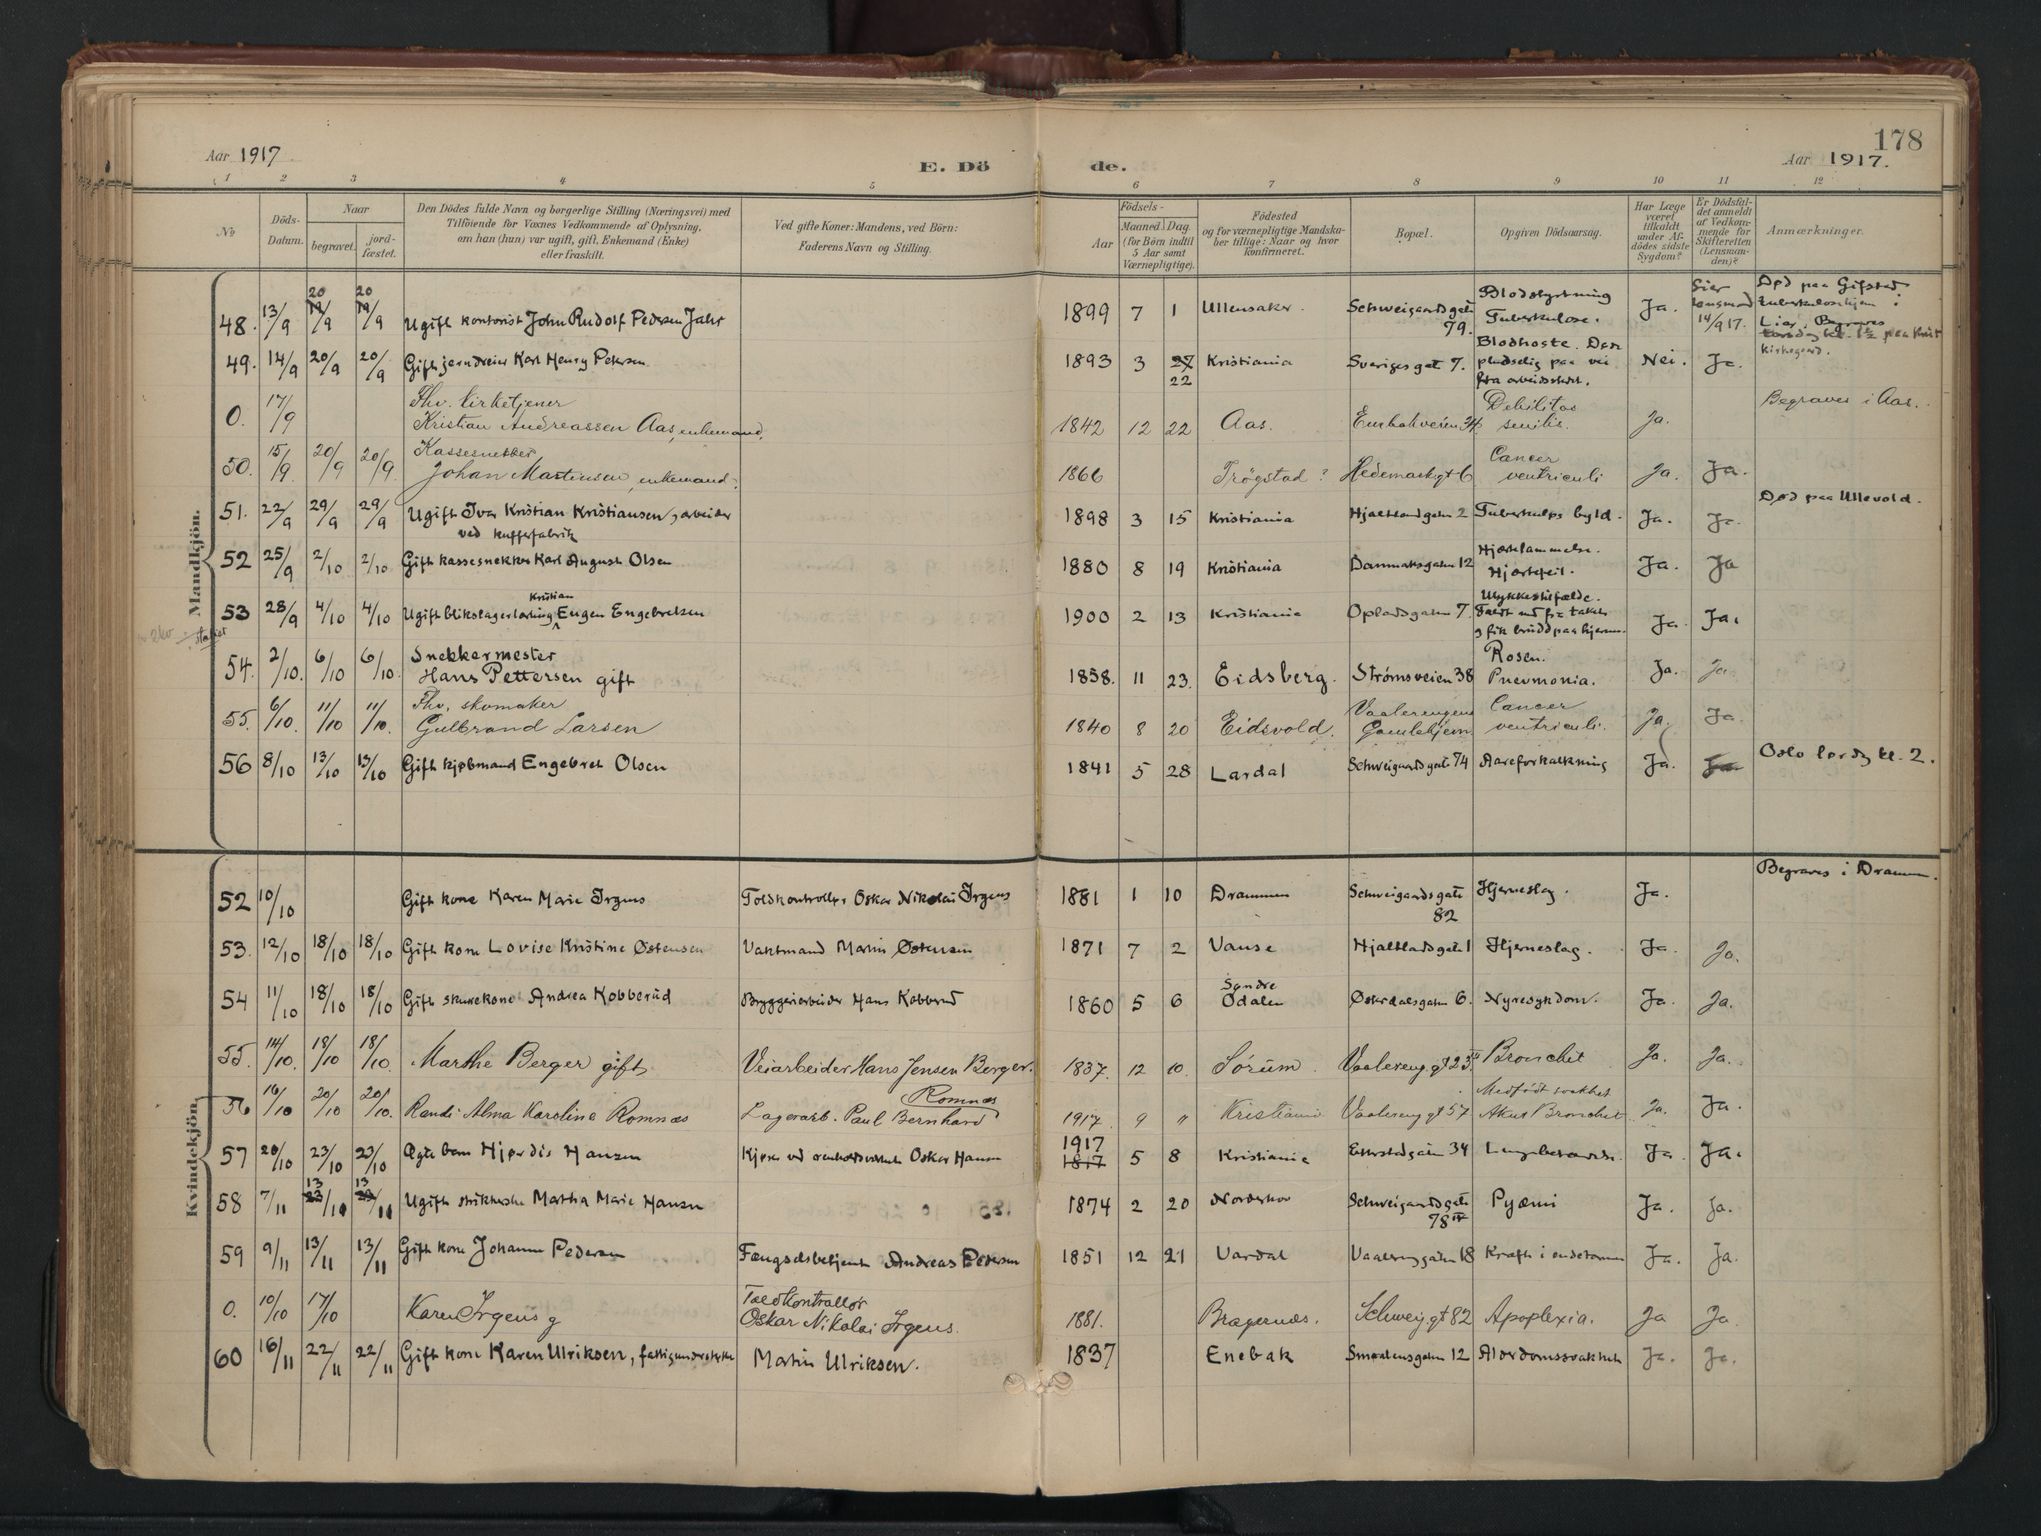 178
Aar 1917
E. Dö de.
Aar 1917.
1 2 3 4 5 6 7 8 9 10 11 12
No
Döds-Datum.
Naar
begravet.
jord-fæstet.
Den Dödes fulde Navn og borgerlige Stilling (Næringsvei) med
Tilföiende for Voxnes Vedkommende af Oplysning,
om han (hun) var ugift, gift, Enkemand (Enke)
eller fraskilt.
Ved gifte Koner: Mandens, ved Börn:
Faderens Navn og Stilling.
Födsels-
Aar
Maaned. Dag.
(for Börn indtil
5 Aar samt
Værnepligtige).
Födested
og for værnepligtige Mandska-
ber tillige: Naar og hvor
konfirmeret.
Bopæl.
Opgiven Dödsaarsag.
Har Læge
været
tilkaldt
under Af-
dödes sidste
Sygdom?
Er Dödsfal-
det anmeldt
af Vedkom-
mende for
Skifteretten
(Lensman-
den)?
Anmærkninger.
Mandkjön.
48. 13/9 20/9 20/9 Ugift kontorist John Rudolf Pedersen Jahr 1899 7 1 Ullensaker Schweigaardsgate 79. Blodstyrtning Tuberkulose. Ja. Lier lensmand 14/9 17. Død paa Gifstad tuberkulosehjem i Lier. Begraves kirkegaard.
49. 14/9 20/9 20/9 Gift jerndreier Karl Henry Petersen 1893 3 27 22 Kristiania Sverigesgt 7. Blodhoste. Døde pludselig paa vei fra arbeidsstedet. Nei. Ja.
0. 17/9 Fhv. kirketjener Kristian Andreassen Aas, enkemand. 1842 12 22 Aas. 34 Debilitas senilis. Ja. Begraves i Aas.
50. 15/9 20/9 20/9. Kassesnekker Johan Martinsen, enkemand. 1866 Trøgstad? Hedemarksgt 6 Cancer ventriculi Ja. Ja.
51. 22/9 29/9 29/9 Ugift Ivar Kristian Kristiansen, arbeider ved kufferfabrik 1898 3 15 Kristiania Hjaltlandsgaten 2 Tuberkuløs byld. Ja. Ja. Død paa Ullevold.
52 25/9 2/10 2/10 Gift kassesnekker Karl August Olsen 1880 8 19 Kristiania Danmarksgaten 12 Hjertelammelse. Hjertefeil. Ja. Ja
53 28/9 4/10 4/10 Ugift blikslagerlærling Kristian Eugen Engebretsen 1900 2 13 Kristiania Oplandsgaten 7. Ulykkestilfælde. Faldt ned fra taket og fik brudd paa hjernen. Ja. Ja.
54. 2/10. 6/10 6/10. Snekkermester Hans Pettersen gift 1858. 11 23. Eidsberg. Strømsveien 38 Rosen. Pnevmonia. Ja. Ja.
55. 6/10. 11/10 11/10. Fhv. skomaker Gulbrand Larsen 1840 8 20 Eidsvold. Vaalerengens Gamlehjem. Cancer ventriculi. Ja. Ja.
56 8/10 13/10 13/10 Gift kjøbmand Engebret Olsen 1841 5 28 Lardal Schweigaardsgate 74 Aareforkalkning Ja. Ja Oslo lørdag kl. 2.
Kvindekjön.
52 10/10 Gift kone Karen Marie Irgens Toldkontrollør Oskar Nikolai Irgens 1881 1 10 Drammen Schweigaardsgate 82 Hjerneslag. Ja. Begraves i Dramm.
53. 12/10 18/10 18/10 Gift kone Lovise Kristine Østensen Vaktmand Martin Østensen 1871 7 2 Vanse Hjaltlandsgate 1 Hjerneslag. Ja. Ja.
54 11/10 18/10 18/10 Gift skurekone Andrea Kobberud Bryggeriarbeider Hans Kobberud 1860 5 6 Søndre Odalen Østerdalsgaten 6. Nyresykdom. Ja. Ja.
55. 14/10. 18/10 18/10. Marthe Berger gift Veiarbeider Hans Jensen Berger. 1837. 12 10. Sørum. Vaalereng.gt 23 Bronchit Ja. Ja.
56 16/10 20/10 20/10. Randi Alma Karoline Romnæs Lagerarb. Paul Bernhard Romnæs 1917. 9 " Kristiania Vaalereng gt 57 Medfødt svakhet Akut Bronchit Ja. Ja.
57 20/10 23/10 23/10 Ægte barn Hjørdis Hansen Kjører ved renholdsverket Oskar Hansen 1917 1817 5 8 Kristiania Etterstadgaten 34 Lungebetændelse. Ja. Ja.
58 7/11 13/11 13/11 Ugift strikkerske Martha Marie Hansen 1874 2 20 Norderhov Schweigaardsgate 78 IV Pyæmi Ja. Ja.
59 9/11 13/11 13/11 Gift kone Johanne Pedersen Fængselsbetjent Andreas Pedersen 1851 12 21 Vardal Vaalerenggaten 18 Kræft i endetarmen Ja. Ja.
0. 10/10 17/10 Karen Irgens g Toldkontrollør Oskar Nikolai Irgens. 1881. Bragernæs. Schweig.gt 82 Apoplexia. Ja Ja.
60 16/11 22/11 22/11 Gift kone Karen Ulriksen, fattigunderstyttet Martin Ulriksen. 1837 Enebak Smaalensgaten 12 Alderdomssvakhet Ja. Ja.